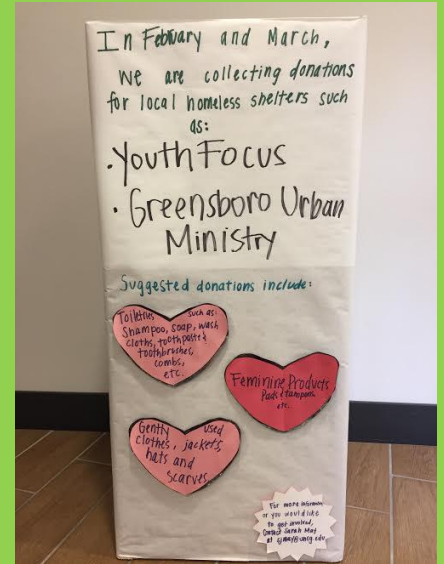 In February and March,
we are collecting donations
for local homeless shelters such
as:
• Youth Focus
• Greensboro Urban
Ministry
Suggested donations include:
Toiletries such as:
Shampoo, soap, wash
cloths, toothpaste &
toothbrushes,
combs,
etc.
Feminine Products
Pads & tampons,
etc.
Gently used
clothes, jackets,
hats and
scarves
For more
or you would like
to get involved,
Contact Sarah May
at